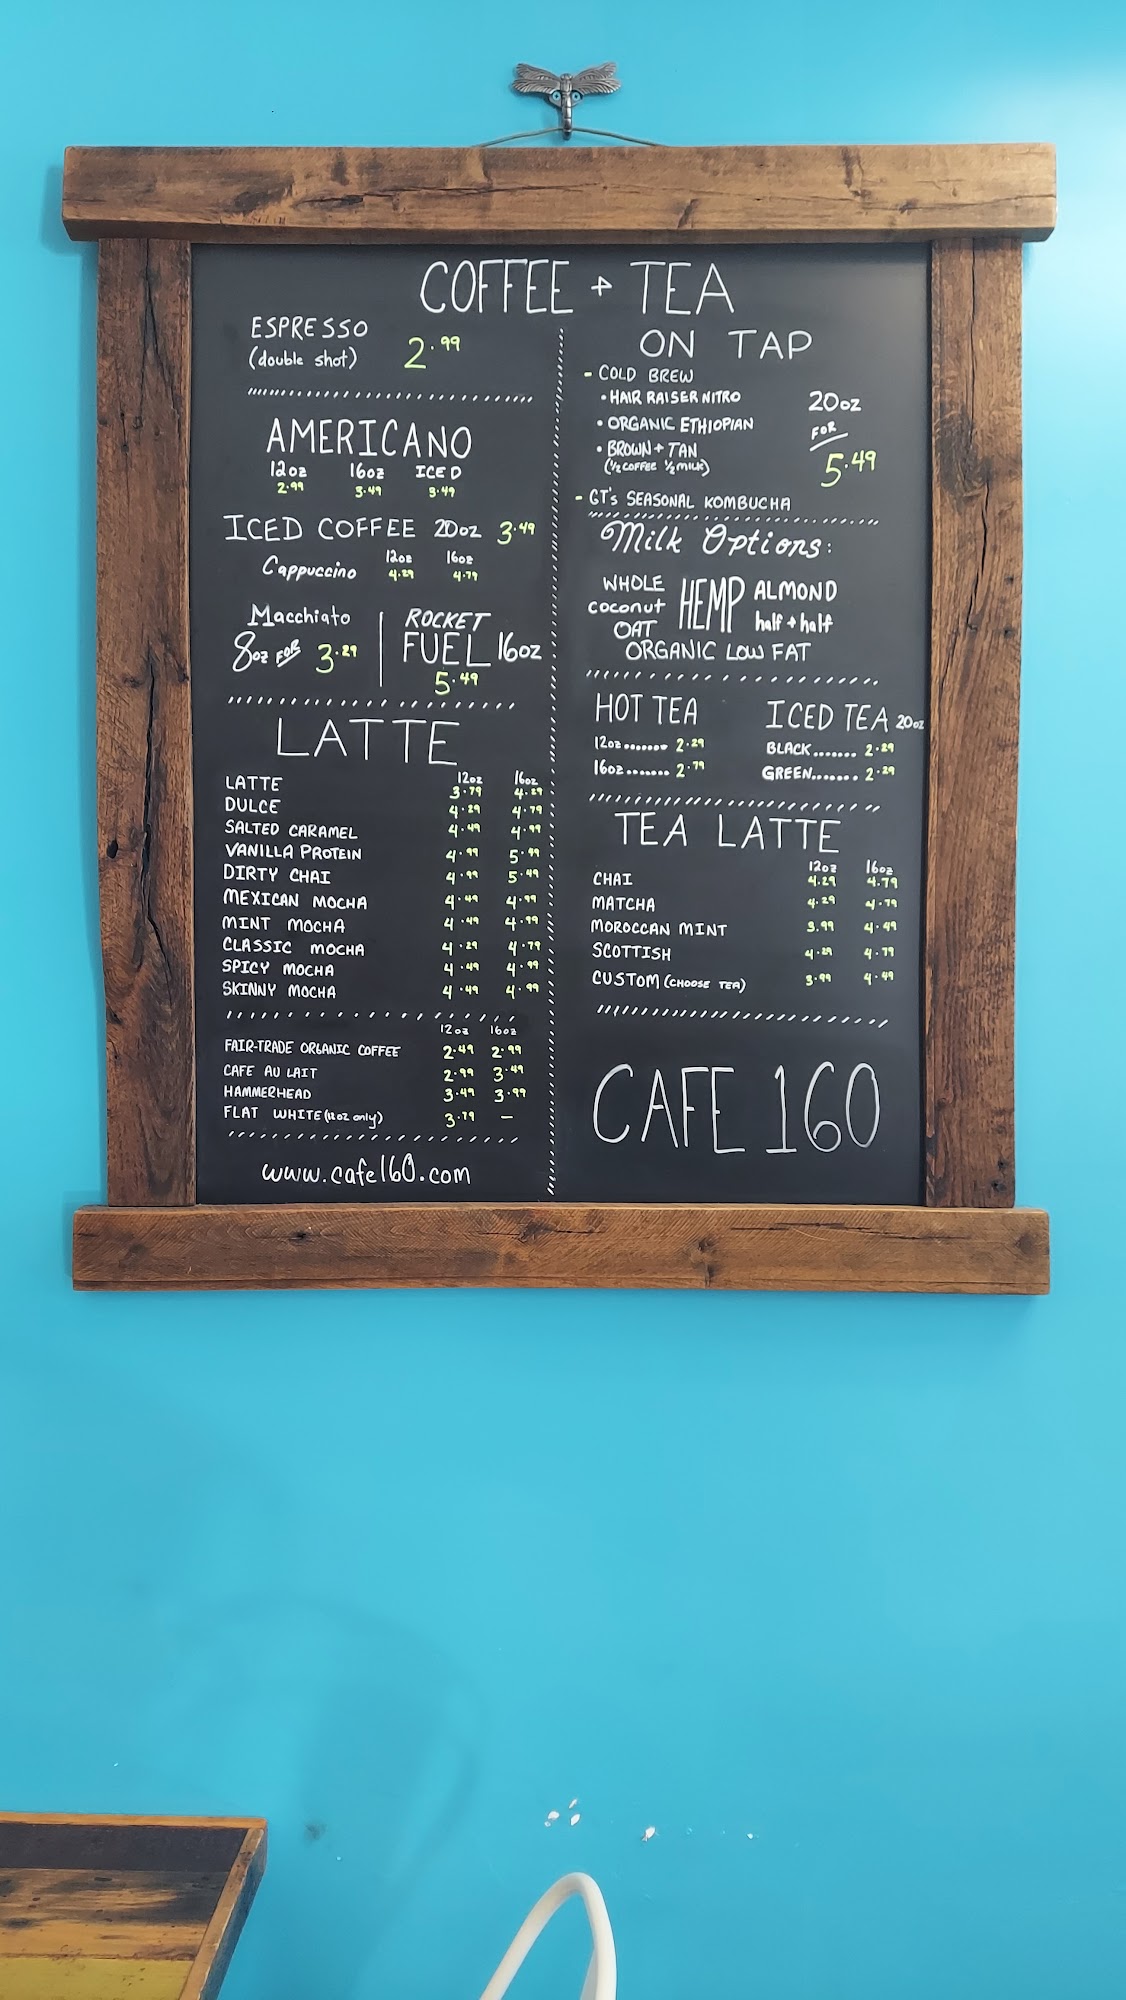 COFFEE + TEA
ESPRESSO
(double shot) 2.99
AMERICANO
12oz 16oz ICED
2.99 3.49 3.49
ICED COFFEE 20oz 3.49
Cappuccino 12oz 16oz
4.29 4.79
Macchiato
8oz FOR 3.29
ROCKET
FUEL 16oz
5.49
LATTE
12oz 16oz
LATTE 3.79 4.29
DULCE 4.29 4.79
SALTED CARAMEL 4.49 4.99
VANILLA PROTEIN 4.99 5.49
DIRTY CHAI 4.99 5.49
MEXICAN MOCHA 4.49 4.99
MINT MOCHA 4.49 4.99
CLASSIC MOCHA 4.29 4.79
SPICY MOCHA 4.49 4.99
SKINNY MOCHA 4.49 4.99
12oz 16oz
FAIR-TRADE ORGANIC COFFEE 2.49 2.99
CAFE AU LAIT 2.99 3.49
HAMMERHEAD 3.49 3.99
FLAT WHITE (12oz only) 3.79 —
www.cafe160.com
ON TAP
- COLD BREW
• HAIR RAISER NITRO
• ORGANIC ETHIOPIAN
• BROWN + TAN
(½ COFFEE ½ MILK)
20oz
FOR
5.49
- GT's SEASONAL KOMBUCHA
Milk Options:
WHOLE HEMP ALMOND
coconut half + half
OAT
ORGANIC LOW FAT
HOT TEA
12oz....... 2.29
16oz....... 2.79
ICED TEA 20oz
BLACK....... 2.29
GREEN....... 2.29
TEA LATTE
12oz 16oz
CHAI 4.29 4.79
MATCHA 4.29 4.79
MOROCCAN MINT 3.99 4.49
SCOTTISH 4.29 4.79
CUSTOM (CHOOSE TEA) 3.99 4.49
CAFE 160